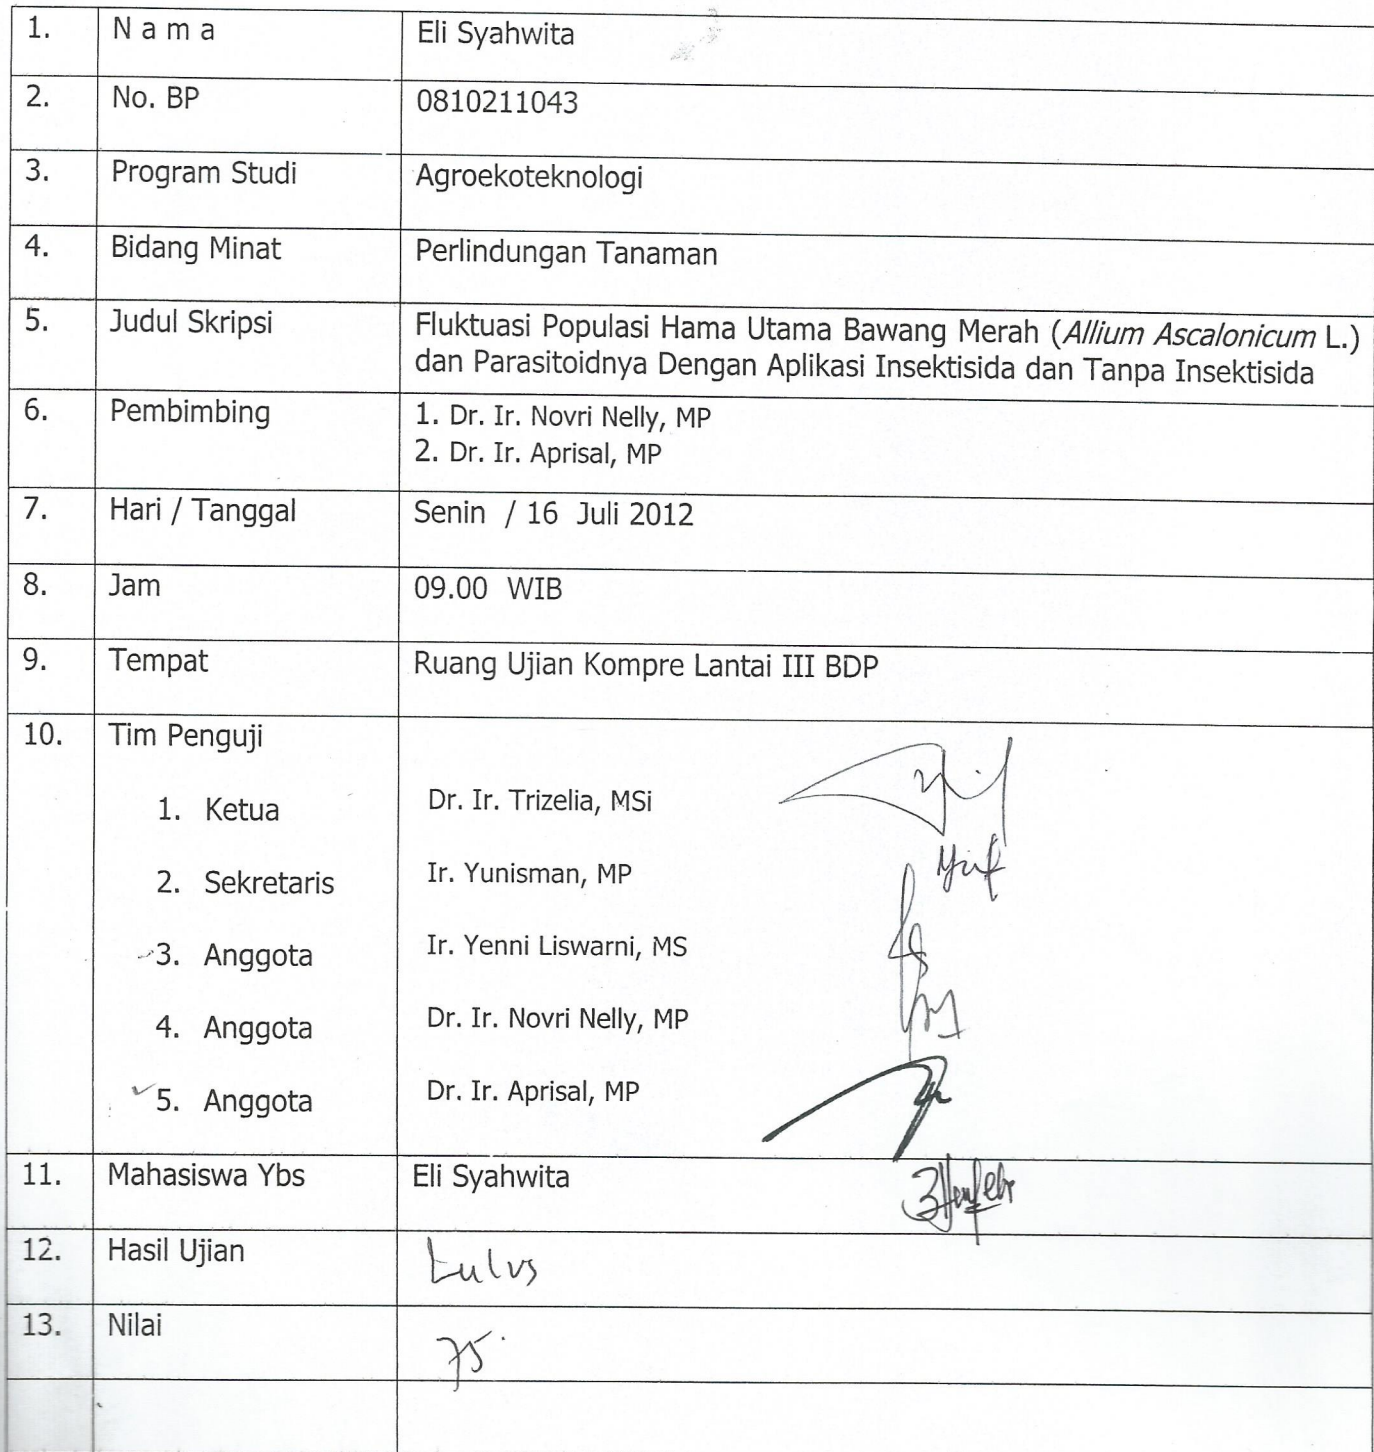 1. N a m a Eli Syahwita
2. No. BP 0810211043
3. Program Studi Agroekoteknologi
4. Bidang Minat Perlindungan Tanaman
5. Judul Skripsi Fluktuasi Populasi Hama Utama Bawang Merah (Allium Ascalonicum L.)
dan Parasitoidnya Dengan Aplikasi Insektisida dan Tanpa Insektisida
6. Pembimbing 1. Dr. Ir. Novri Nelly, MP
2. Dr. Ir. Aprisal, MP
7. Hari / Tanggal Senin / 16 Juli 2012
8. Jam 09.00 WIB
9. Tempat Ruang Ujian Kompre Lantai III BDP
10. Tim Penguji
1. Ketua Dr. Ir. Trizelia, MSi
2. Sekretaris Ir. Yunisman, MP
3. Anggota Ir. Yenni Liswarni, MS
4. Anggota Dr. Ir. Novri Nelly, MP
5. Anggota Dr. Ir. Aprisal, MP
11. Mahasiswa Ybs Eli Syahwita
12. Hasil Ujian Lulus
13. Nilai 75